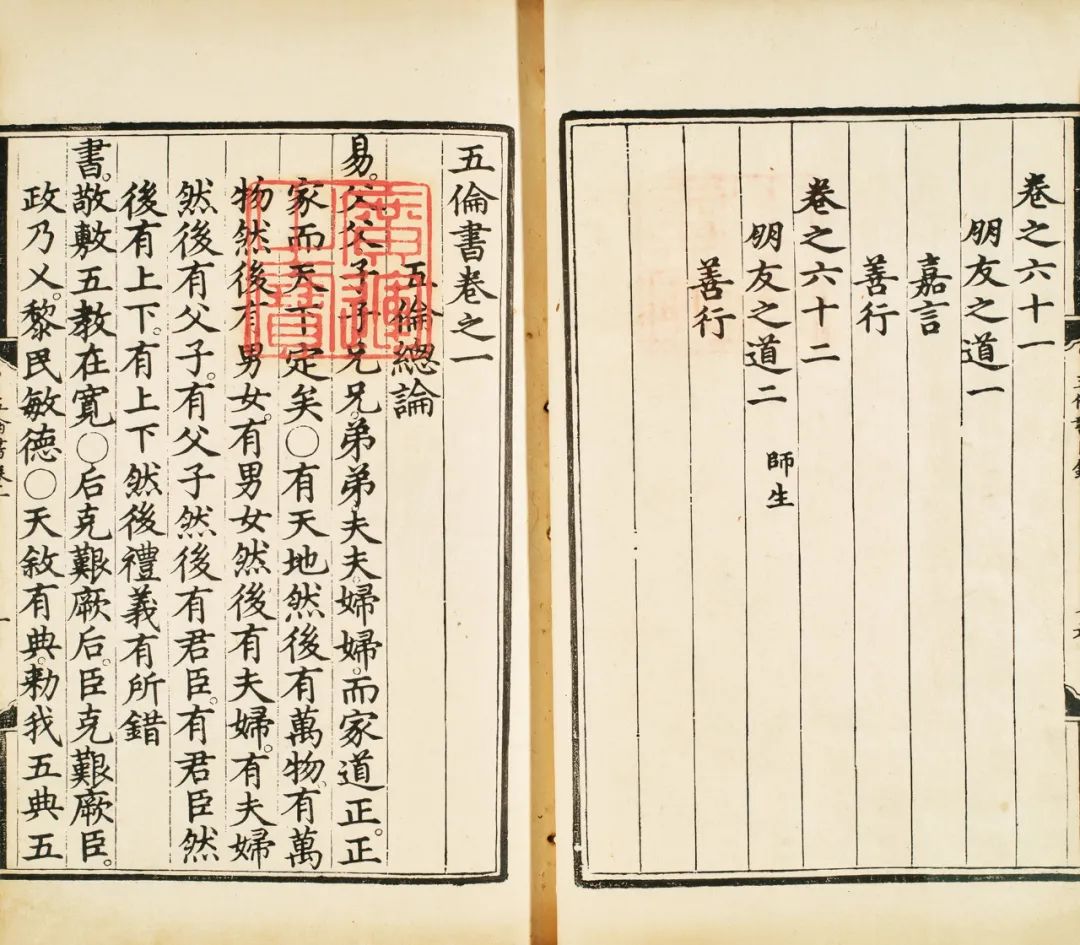 卷之六十一
朋友之道一
嘉言
善行
卷之六十二
朋友之道二 師生
善行
五倫書卷之一
五倫總論
易。父父子子兄兄。弟弟夫夫婦婦。而家道正。正
家而天下定矣○有天地然後有萬物。有萬
物然後有男女。有男女然後有夫婦。有夫婦
然後有父子。有父子然後有君臣。有君臣然
後有上下。有上下然後禮義有所錯
書。敬敷五教在寬○后克艱厥后。臣克艱厥臣。
政乃乂。黎民敏德○天敘有典。勑我五典五
廣運之寶